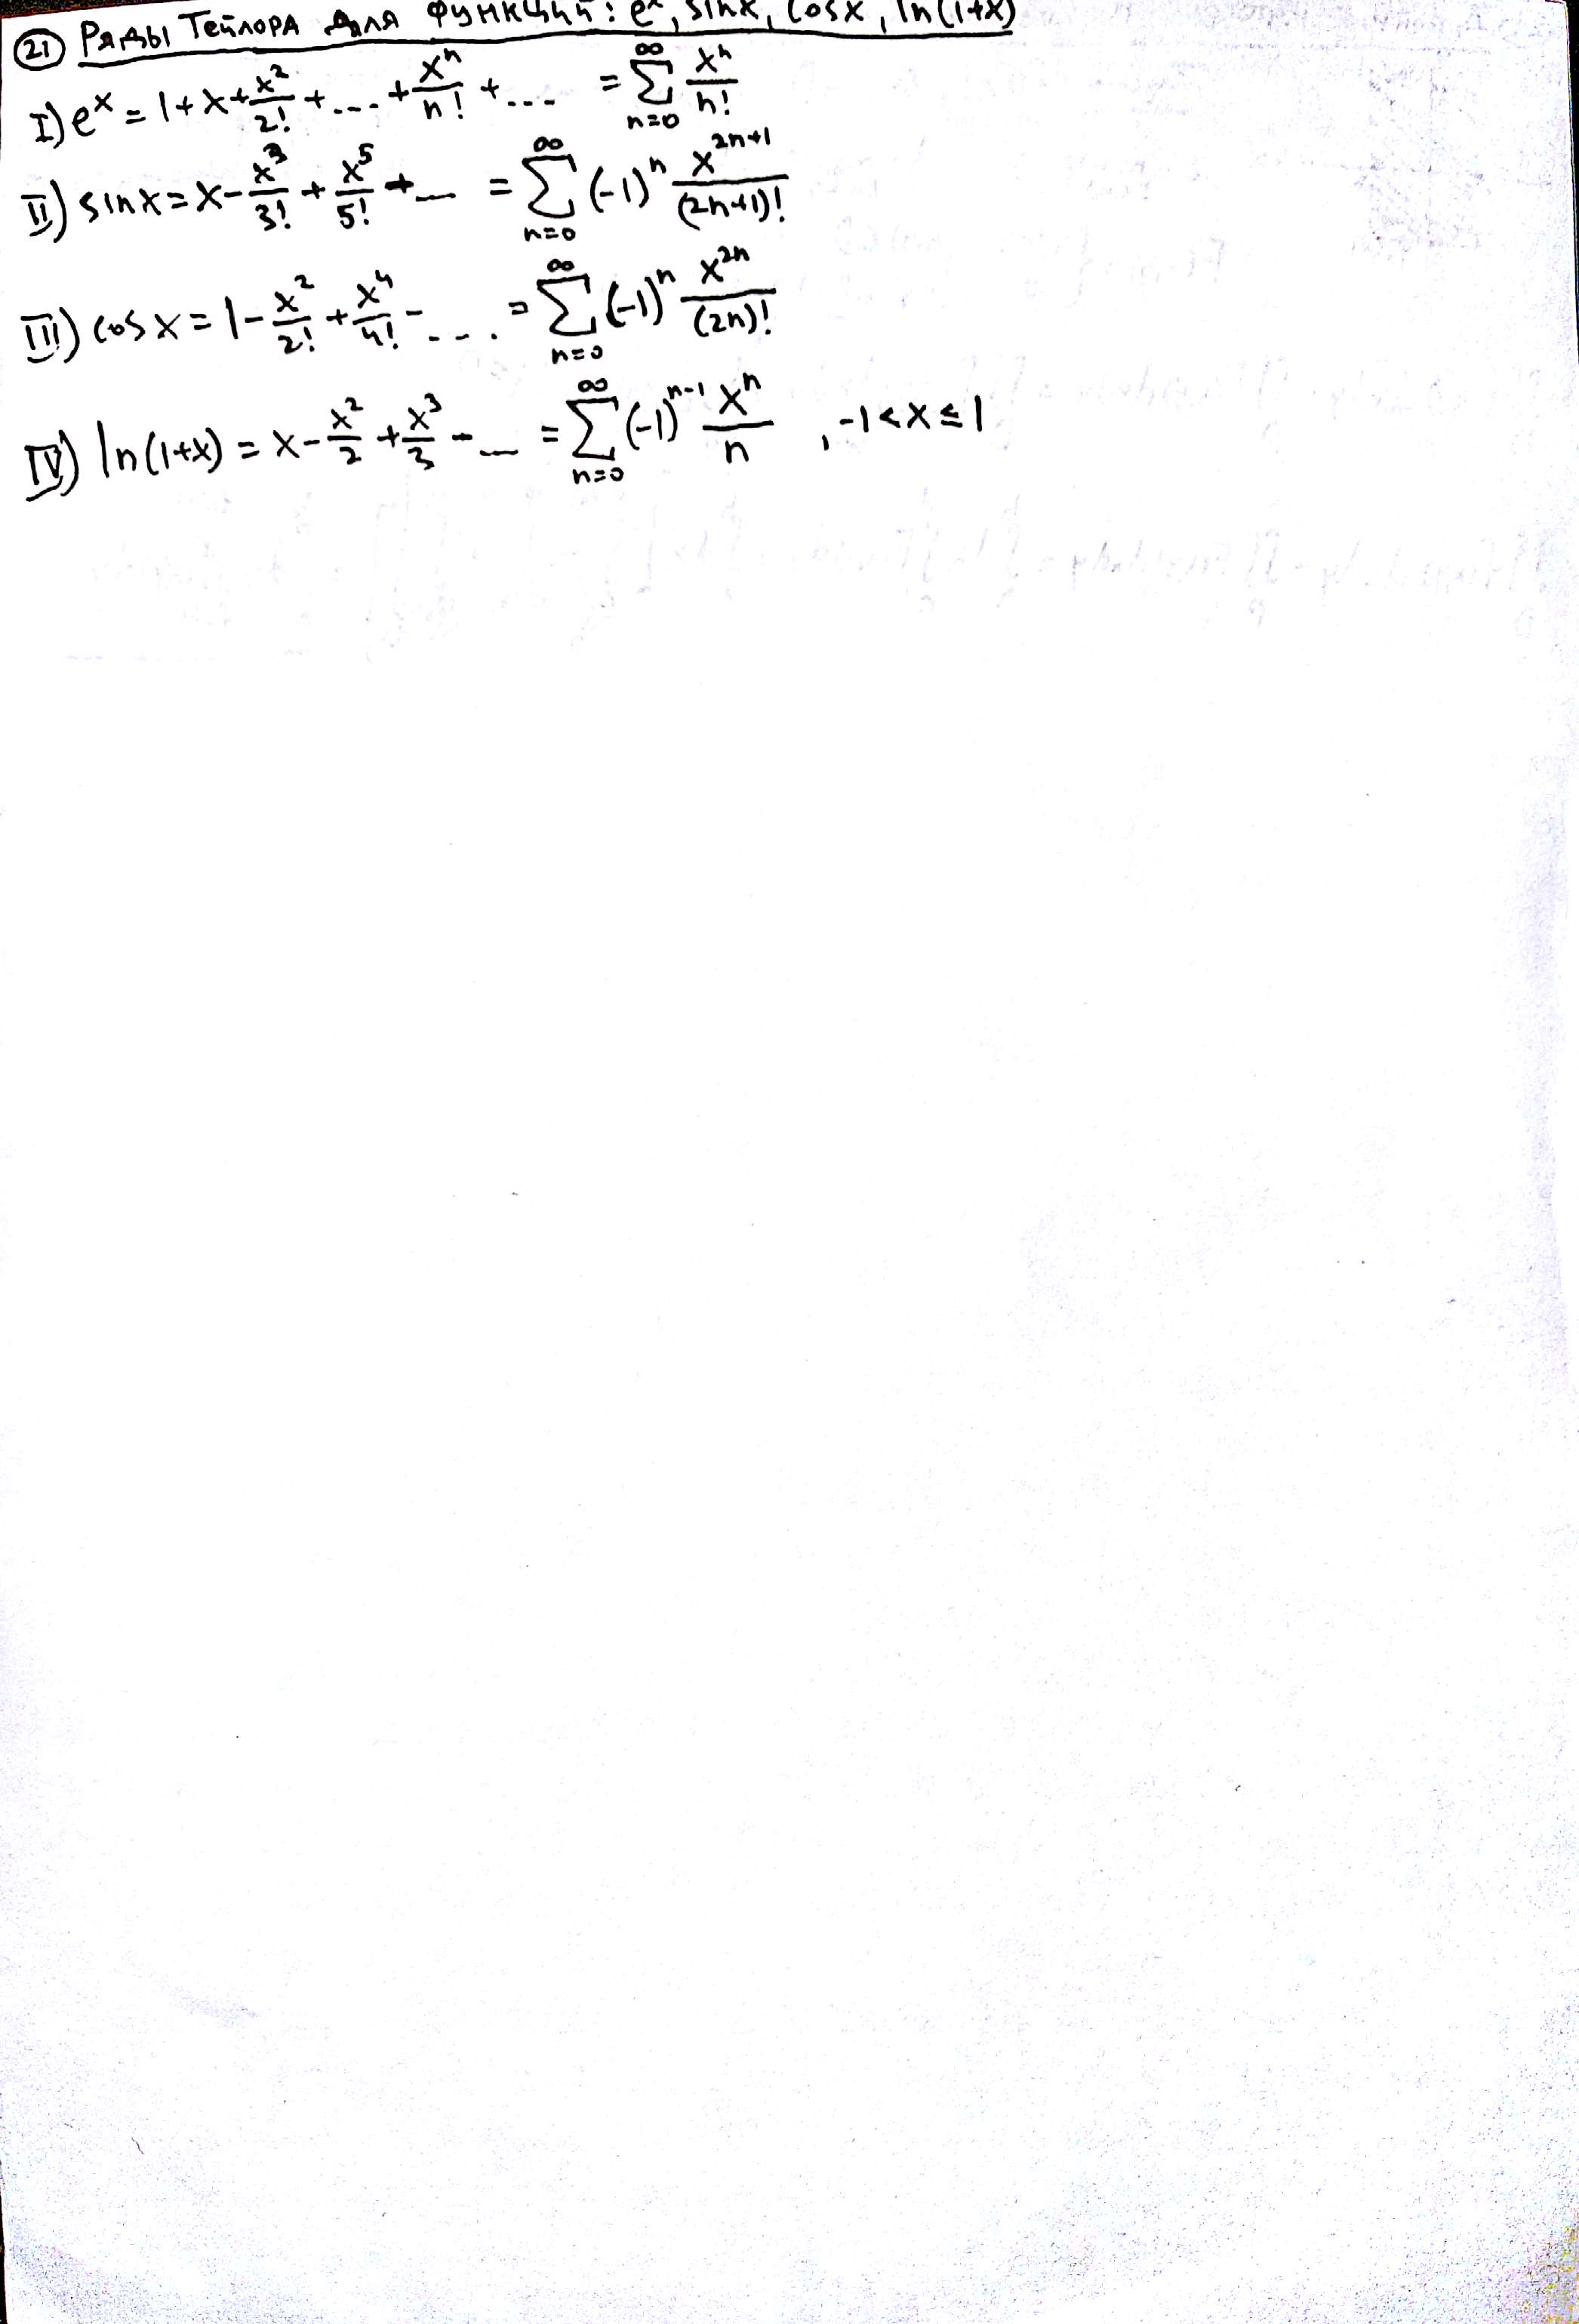 21 Ряды Тейлора для функций: e^x, sinx, cosx, ln(1+x)
I) e^x = 1+x+x^2/2!+...+x^n/n!+... = ∑_{n=0}^{∞} x^n/n!
II) sinx = x-x^3/3!+x^5/5!+... = ∑_{n=0}^{∞} (-1)^n x^{2n+1}/(2n+1)!
III) cosx = 1-x^2/2!+x^4/4!-.... = ∑_{n=0}^{∞} (-1)^n x^{2n}/(2n)!
IV) ln(1+x) = x-x^2/2+x^3/3-... = ∑_{n=0}^{∞} (-1)^{n-1} x^n/n , -1<x≤1